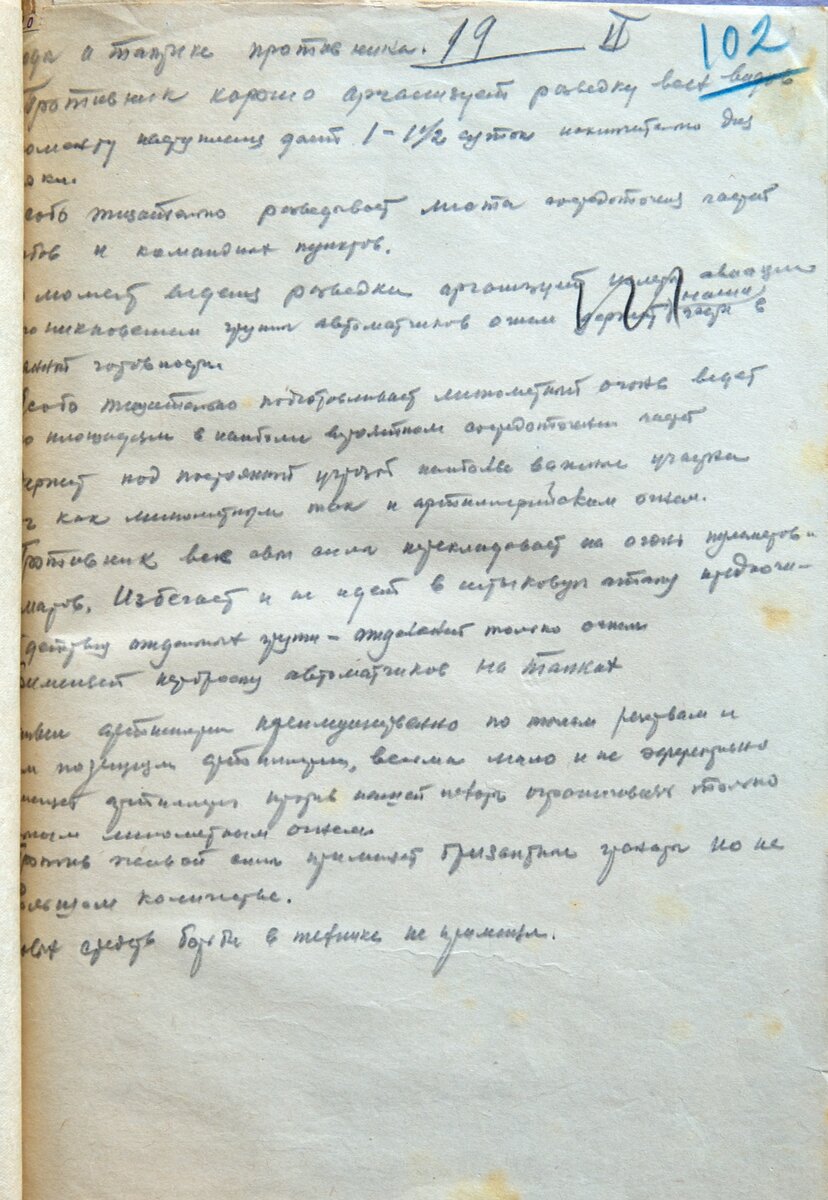 ода и тактике противника. 19 II 102
Противник хорошо организует разведку всех видов
моменту наступления дает 1-1½ суток исключительно для
ки.
собо тщательно разведывает места сосредоточия частей
бов и командных пунктов.
момент ведения разведки организует авиации
никновением групп автоматчиков огнем держит наши части в
готовности.
собо тщательно подготовливает минометный огонь ведет
о площадям в наиболи вероятном сосредоточии частей
держит под постоянной угрозой наиболее важные участки
как минометным так и артиллерийским огнем.
Противник всю силу перекладывает на огонь пулеметов
Избегает и не идет в штыковую атаку предпочи-
действия отдельных групп - отделений только огнем
рименяет переброску автоматчиков на танках
артиллерии преимущественно по тылам резервам и
м позициям артиллерии, весьма мало и не эффективно
артиллерию против нашей пехоты ограничивая только
минометным огнем.
ротив живой силы применяет бризантные гранаты но не
большом количестве.
овых средств борьбы в технике не применял.